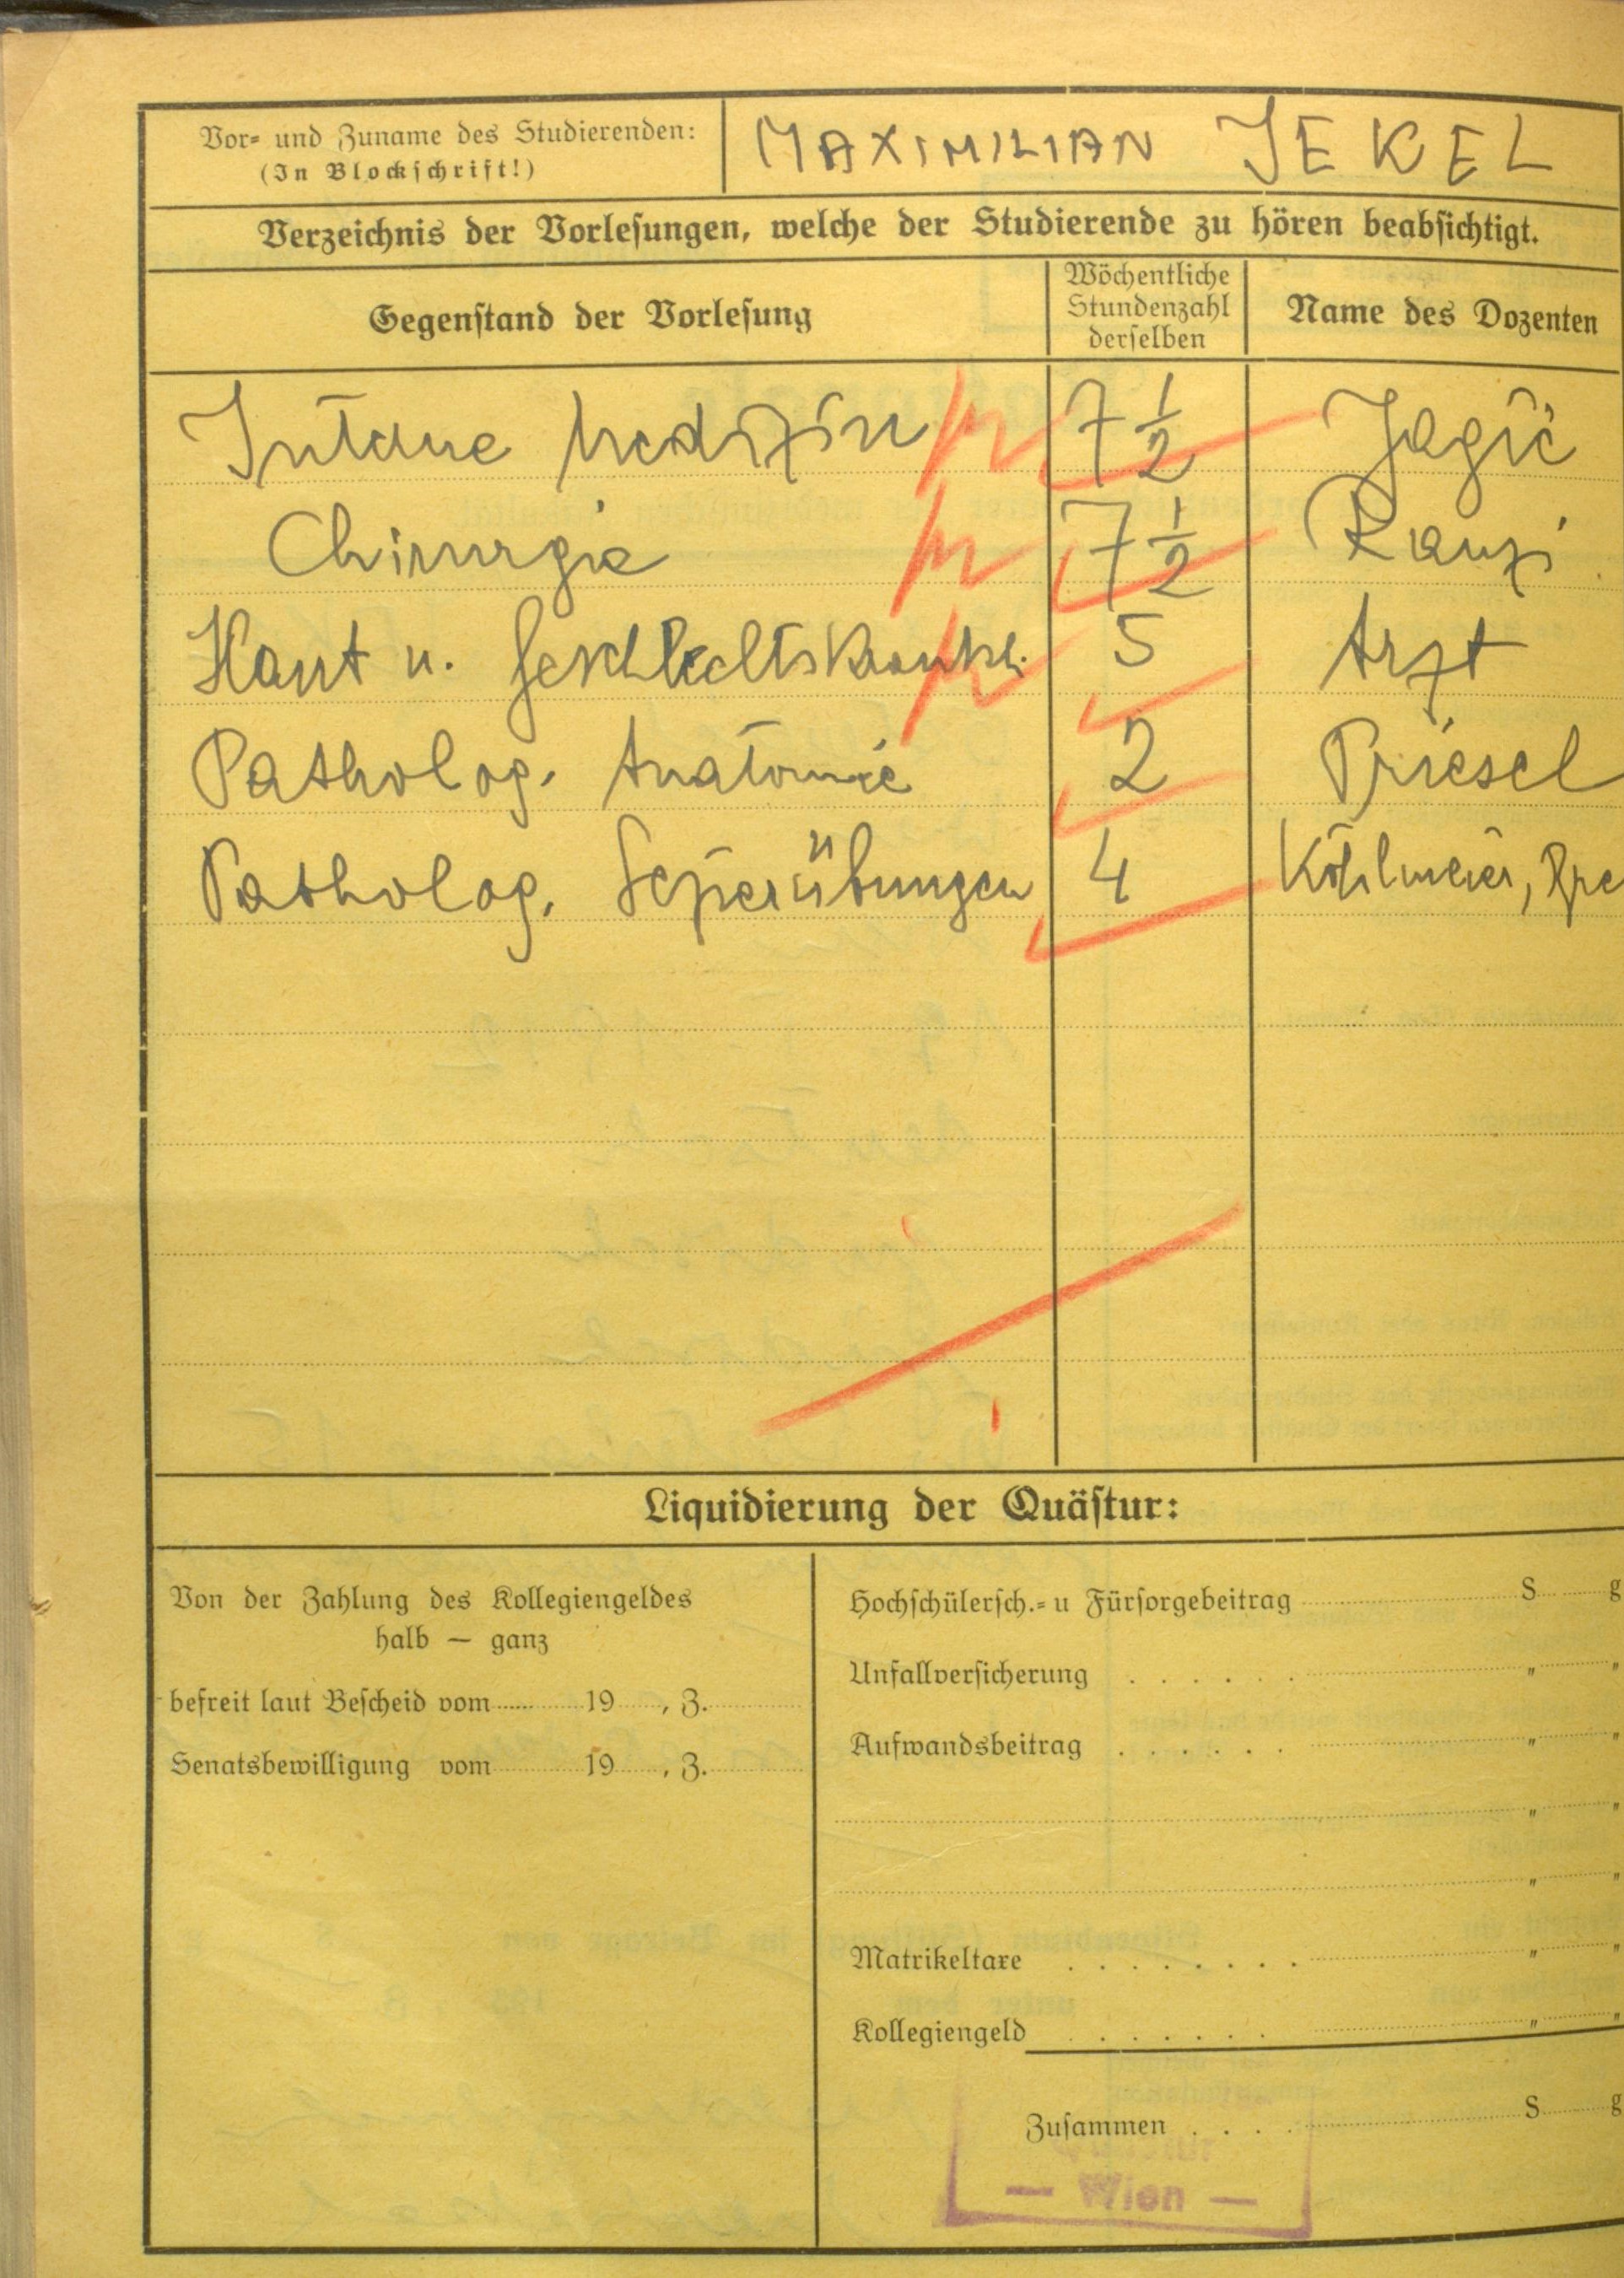 Vor- und Zuname des Studierenden:
(In Blockschrift!)
MAXIMILIAN JEKEL
Verzeichnis der Vorlesungen, welche der Studierende zu hören beabsichtigt.
Gegenstand der Vorlesung
Wöchentliche
Stundenzahl
derselben
Name des Dozenten
Interne Medizin 7 1/2 Jagić
Chirurgie 7 1/2 Ranzi
Haut u. Geschlechtskrankh. 5 Arzt
Patholog. Anatomie 2 Priesel
Patholog. Sezierübungen 4
Liquidierung der Quästur:
Von der Zahlung des Kollegiengeldes
halb — ganz
befreit laut Bescheid vom 19 , Z.
Senatsbewilligung vom 19 , Z.
Hochschülersch.- u Fürsorgebeitrag S g
Unfallversicherung . . . . . . " "
Aufwandsbeitrag . . . . . . " "
" "
" "
Matrikeltaxe . . . . . . . . " "
Kollegiengeld . . . . . . . " "
Zusammen . . . . S g
— Wien —